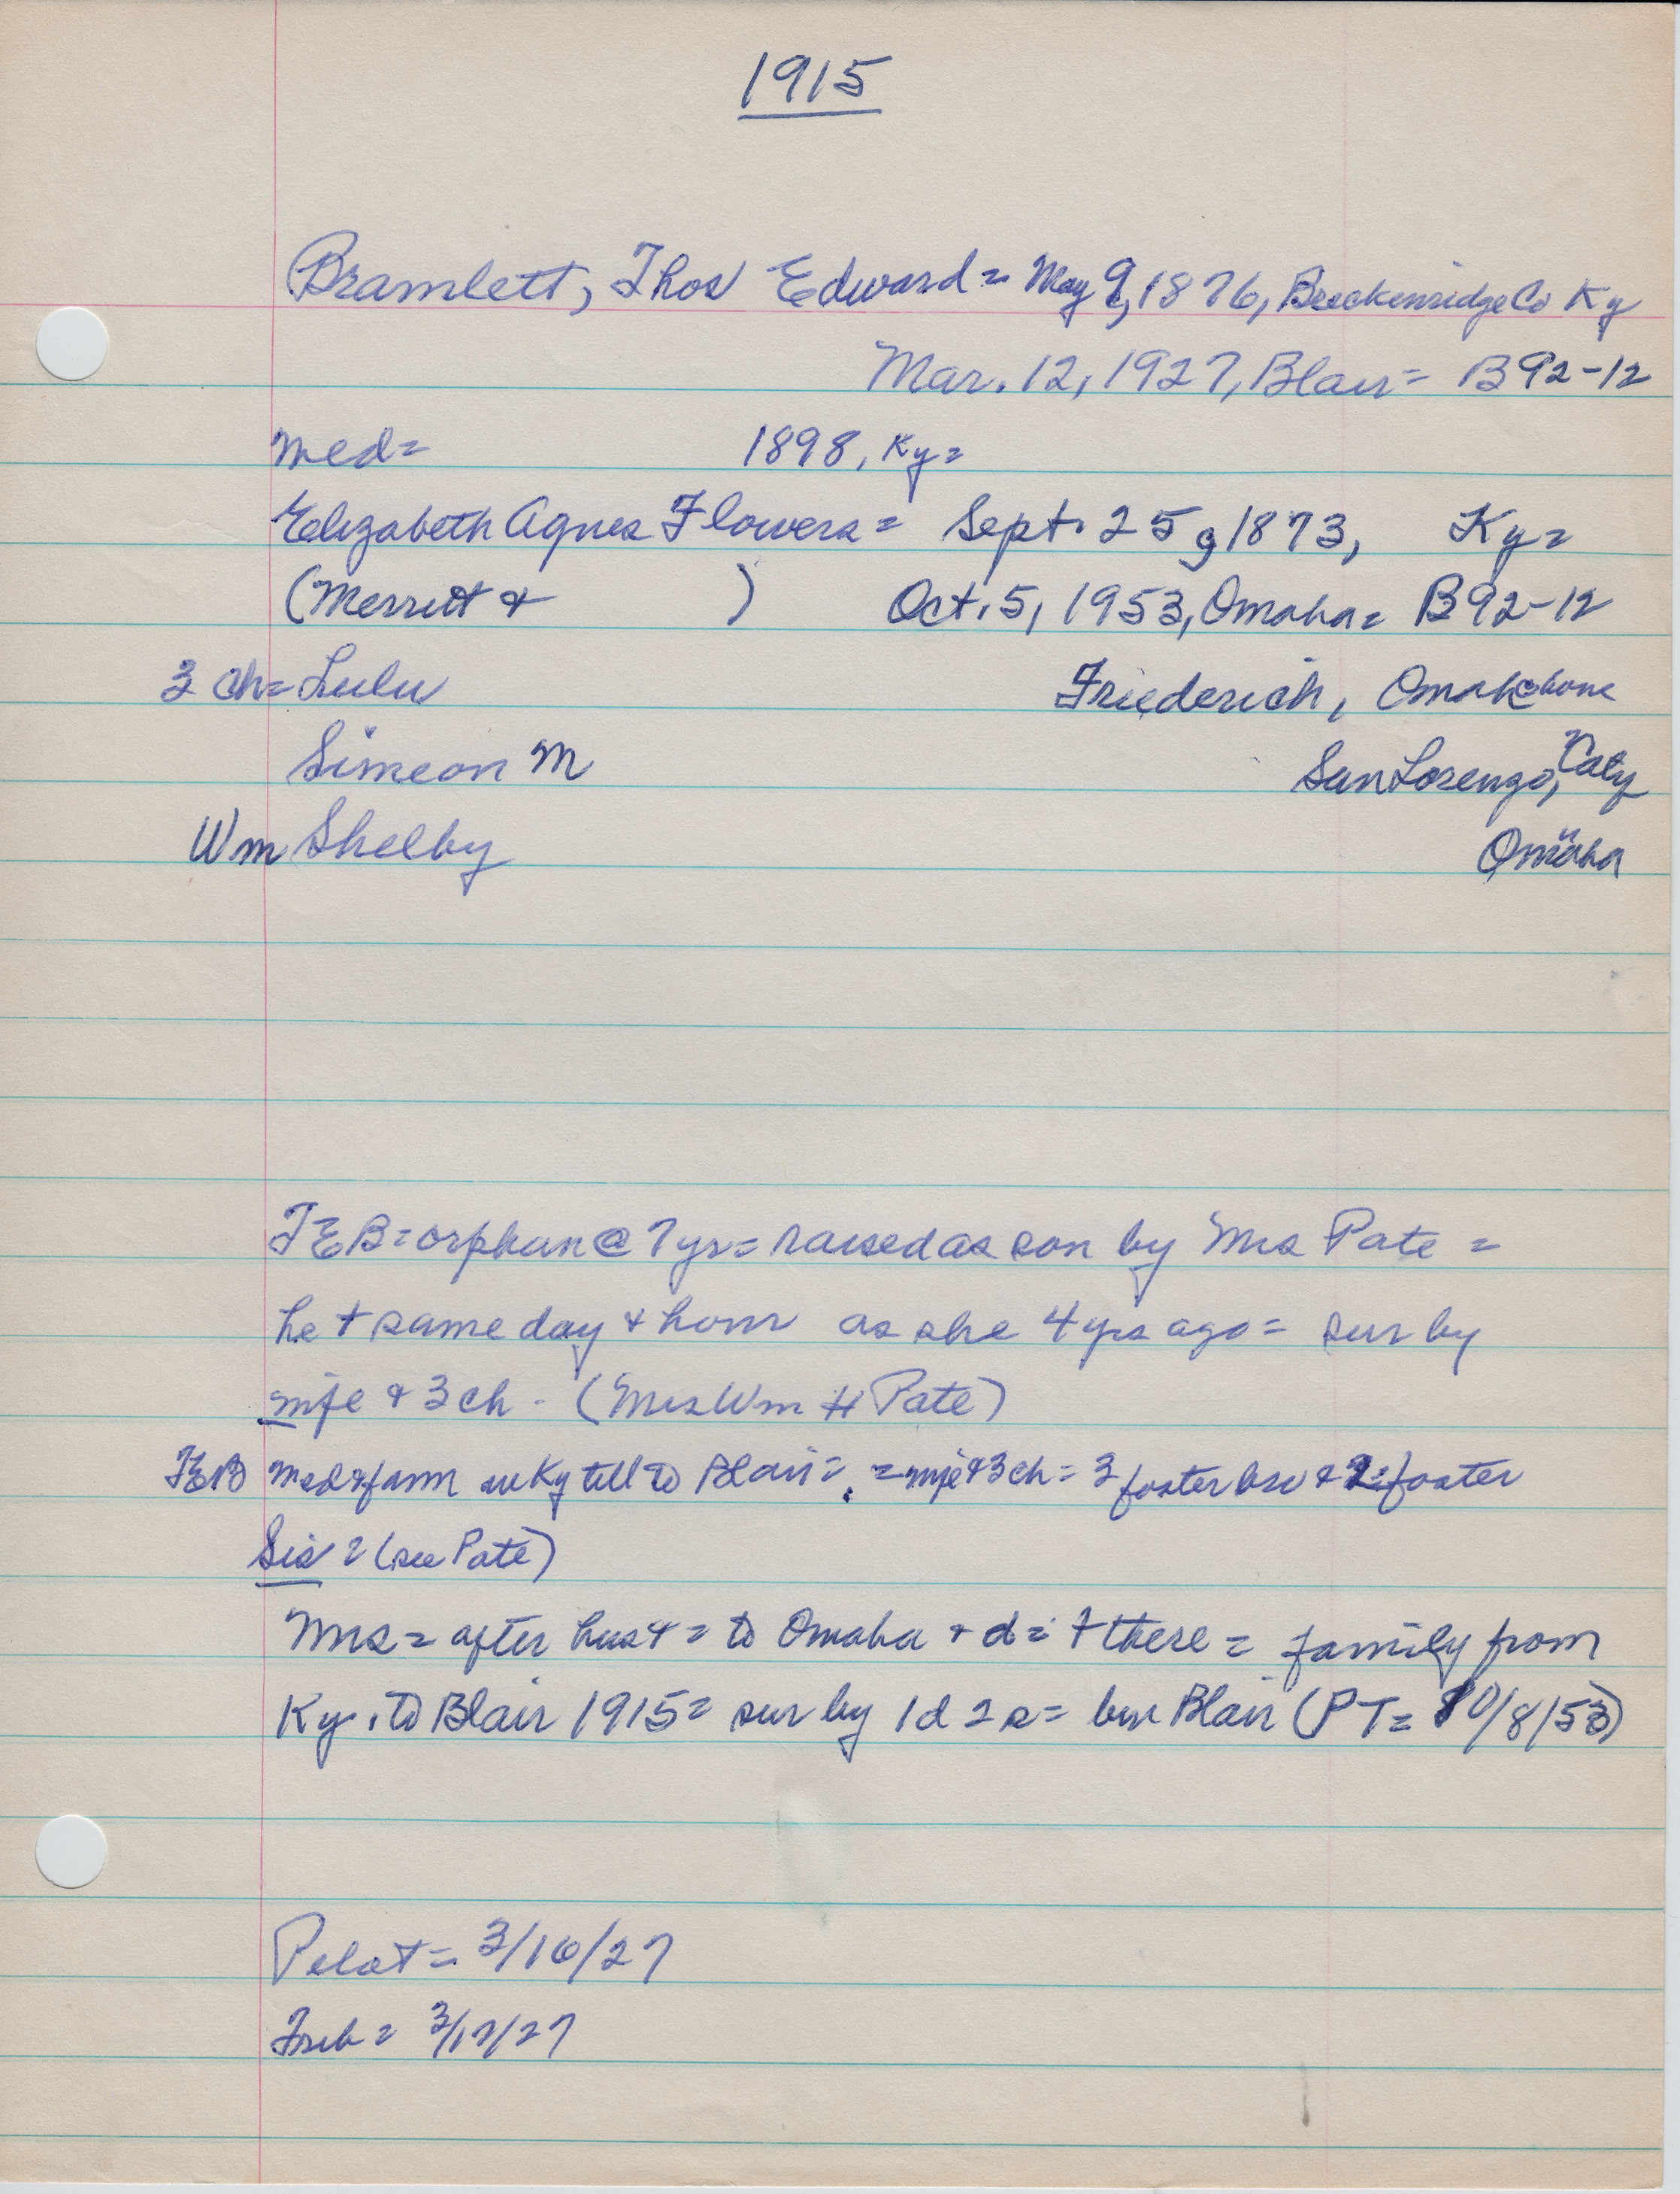 1915
Bramlett, Thos Edward = May 9, 1876, Breckenridge Co Ky
Mar. 12, 1927, Blair = B92-12
med = 1898, Ky =
Elizabeth Agnes Flowers = Sept. 25, 1873, Ky =
(Merrett & ) Oct. 5, 1953, Omaha = B92-12
3 ch = Lulu Friederich, Omaha
Simeon M San Lorenzo,
Wm Shelby Omaha
TEB = orphan @ 7 yr = raised as son by Mrs Pate =
he + same day & hour as she 4 yrs ago = sur by
mife & 3 ch - (Mrs Wm H Pate)
TEB med & farm in Ky till to Blair = = mife & 3 ch = 3 foster bro & 2 foster
Sis = (see Pate)
Mrs = after hus + = to Omaha & d = + there = family from
Ky. to Blair 1915 = sur by 1 d 2 s = bur Blair (PT = 10/8/53)
Pilot = 3/16/27
3/17/27